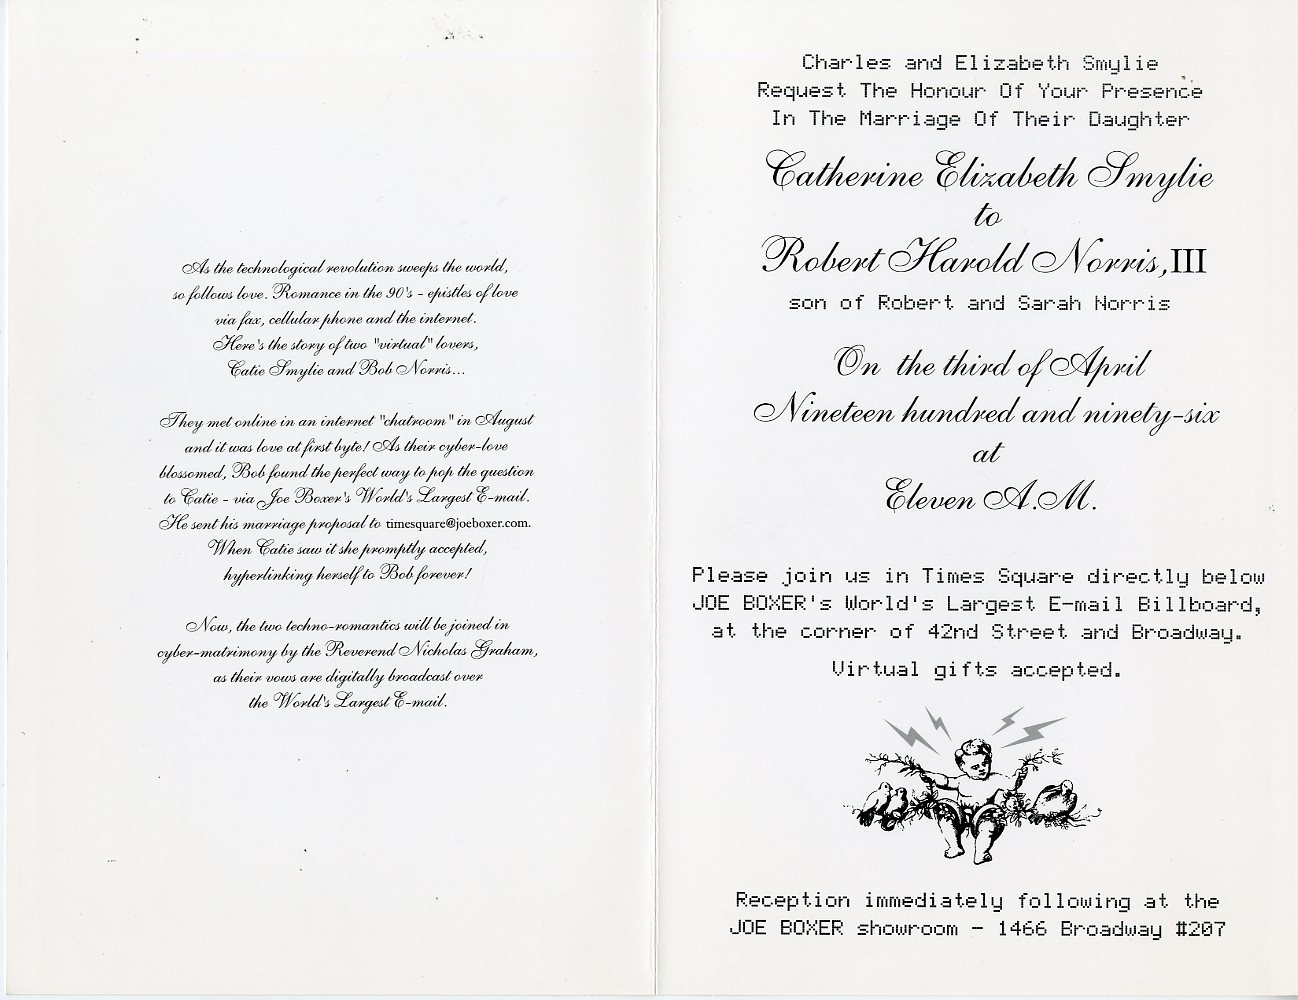 As the technological revolution sweeps the world,
so follows love. Romance in the 90's - epistles of love
via fax, cellular phone and the internet.
Here's the story of two "virtual" lovers,
Catie Smylie and Bob Norris...
They met online in an internet "chatroom" in August
and it was love at first byte! As their cyber-love
blossomed, Bob found the perfect way to pop the question
to Catie - via Joe Boxer's World's Largest E-mail.
He sent his marriage proposal to timesquare@joeboxer.com.
When Catie saw it she promptly accepted,
hyperlinking herself to Bob forever!
Now, the two techno-romantics will be joined in
cyber-matrimony by the Reverend Nicholas Graham,
as their vows are digitally broadcast over
the World's Largest E-mail.
Charles and Elizabeth Smylie
Request The Honour Of Your Presence
In The Marriage Of Their Daughter
Catherine Elizabeth Smylie
to
Robert Harold Norris, III
son of Robert and Sarah Norris
On the third of April
Nineteen hundred and ninety-six
at
Eleven A.M.
Please join us in Times Square directly below
JOE BOXER's World's Largest E-mail Billboard,
at the corner of 42nd Street and Broadway.
Virtual gifts accepted.
Reception immediately following at the
JOE BOXER showroom - 1466 Broadway #207